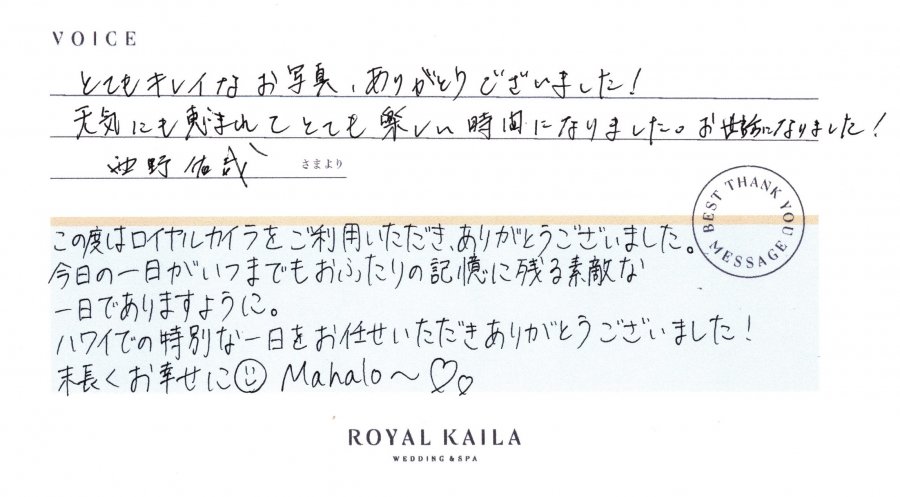 VOICE
とてもキレイなお写真、ありがとうございました!
天気にも恵まれてとても楽しい時間になりました。お世話になりました!
西野佑哉 さまより
BEST THANK YOU MESSAGE
この度はロイヤルカイラをご利用いただき、ありがとうございました。
今日の一日がいつまでもおふたりの記憶に残る素敵な
一日でありますように。
ハワイでの特別な一日をお任せいただきありがとうございました!
末長くお幸せに☺ Mahalo〜♡♡
ROYAL KAILA
WEDDING & SPA